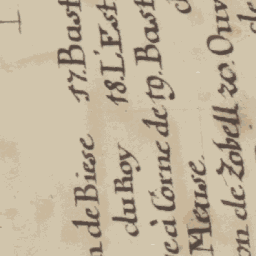 n de Biese 17. Bast
du Roy 18. L'Est
e à Corne de 19. Bast
Meuse
on de Zobell 20. Ouv